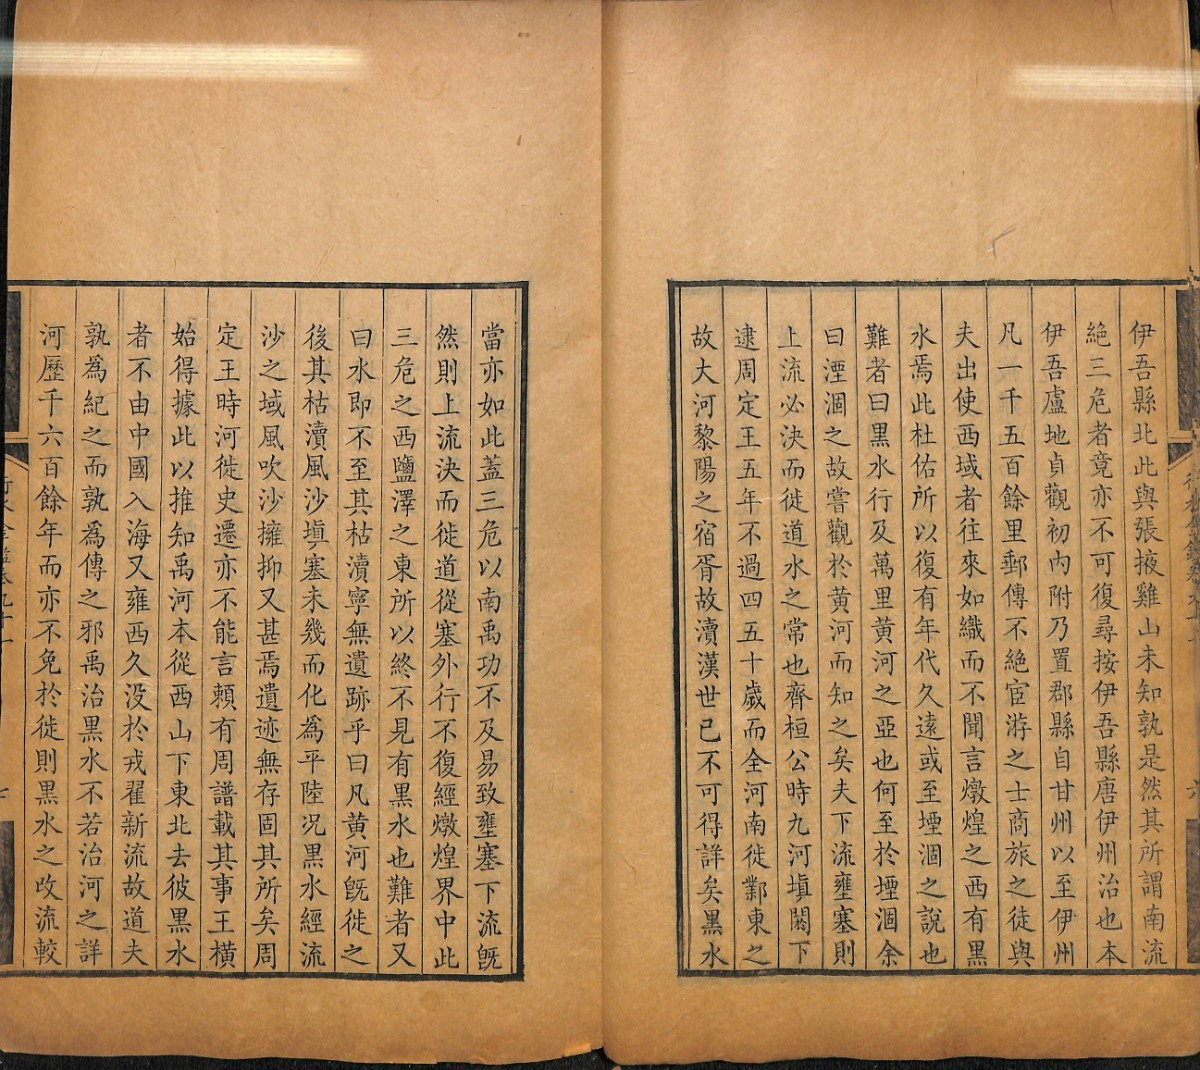 伊吾縣北此與張掖雞山未知孰是然其所謂南流
絕三危者竟亦不可復尋按伊吾縣唐伊州治也本
伊吾盧地貞觀初內附乃置郡縣自甘州以至伊州
凡一千五百餘里郵傳不絕宦游之士商旅之徒與
夫出使西域者往來如織而不聞言燉煌之西有黑
水焉此杜佑所以復有年代久遠或至堙涸之說也
難者曰黑水行及萬里黃河之亞也何至於堙涸余
曰湮涸之故嘗觀於黃河而知之矣夫下流壅塞則
上流必決而徙道水之常也齊桓公時九河塡閼下
逮周定王五年不過四五十歲而全河南徙鄴東之
故大河黎陽之宿胥故瀆漢世已不可得詳矣黑水
當亦如此蓋三危以南禹功不及易致壅塞下流旣
然則上流決而徙道從塞外行不復經燉煌界中此
三危之西鹽澤之東所以終不見有黑水也難者又
曰水即不至其枯瀆寧無遺跡乎曰凡黃河旣徙之
後其枯瀆風沙塡塞未幾而化爲平陸况黑水經流
沙之域風吹沙擁抑又甚焉遺迹無存固其所矣周
定王時河徙史遷亦不能言賴有周譜載其事王橫
始得據此以推知禹河本從西山下東北去彼黑水
者不由中國入海又雍西久没於戎翟新流故道夫
孰爲紀之而孰爲傳之邪禹治黑水不若治河之詳
河歷千六百餘年而亦不免於徙則黑水之改流較